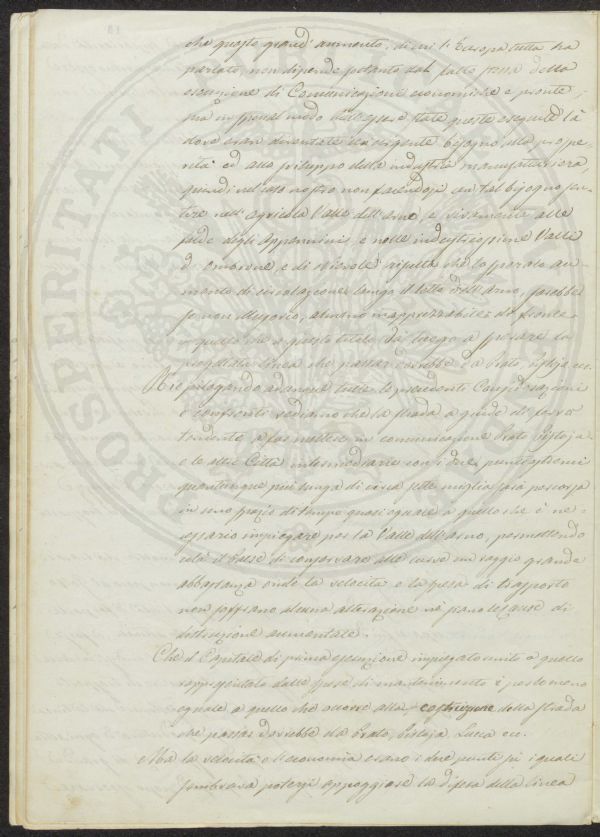 che questo grand' aumento, di cui l' Europa tutta ha
parlato, non dipende soltanto dal fatto della
esecuzione di Comunicazioni economiche e pronte,
ma in egual modo dall' essere state queste eseguite là
dove eran diventate un urgente bisogno alla prospe-
rità ed allo sviluppo della industria manifatturiera,
quindi nel caso nostro non facendosi un tal bisogno sen-
tire nell' agricola Valle dell' Arno, e vivamente alle
falde degli Appennini, e nelle industriosissime Valli
d' Ombrone, e di Nievole risulta che lo sperato au-
mento di circolazione lungo il letto dell' Arno, sarebbe
se non illusorio, almeno inapprezzabile di fronte
a quello che a questo titolo dà luogo a sperare la
progettata linea che passar dovrebbe da Prato Pistoja ec.
Riepilogando adunque tutte le precedenti Considerazioni
e confronti vediamo che la strada a guide di ferro
tendente a far mettere in comunicazione Prato Pistoja
e le altre Città intermediarie con i due punti estremi
quantunque più lunga di circa sette miglia sarà percorsa
in uno spazio di tempo quasi eguale a quello che è ne-
cessario impiegare per la Valle dell' Arno, permettendo
colà il Paese di conservare alle curve un raggio grande
abbastanza onde la velocità e la spesa di trasporto
non soffrano alcuna alterazione nè siano le cause di
distruzione aumentate.
Che il Capitale di prima esecuzione impiegato unito a quello
rappresentato dalle spese di mantenimento è per lo meno
eguale a quello che occorre alla costruzione della strada
che passar dovrebbe da Prato, Pistoja, Lucca ec.
Ma la velocità e l' economia erano i due punti su i quali
sembrava potersi appoggiare la difesa della linea
PROSPERITATI